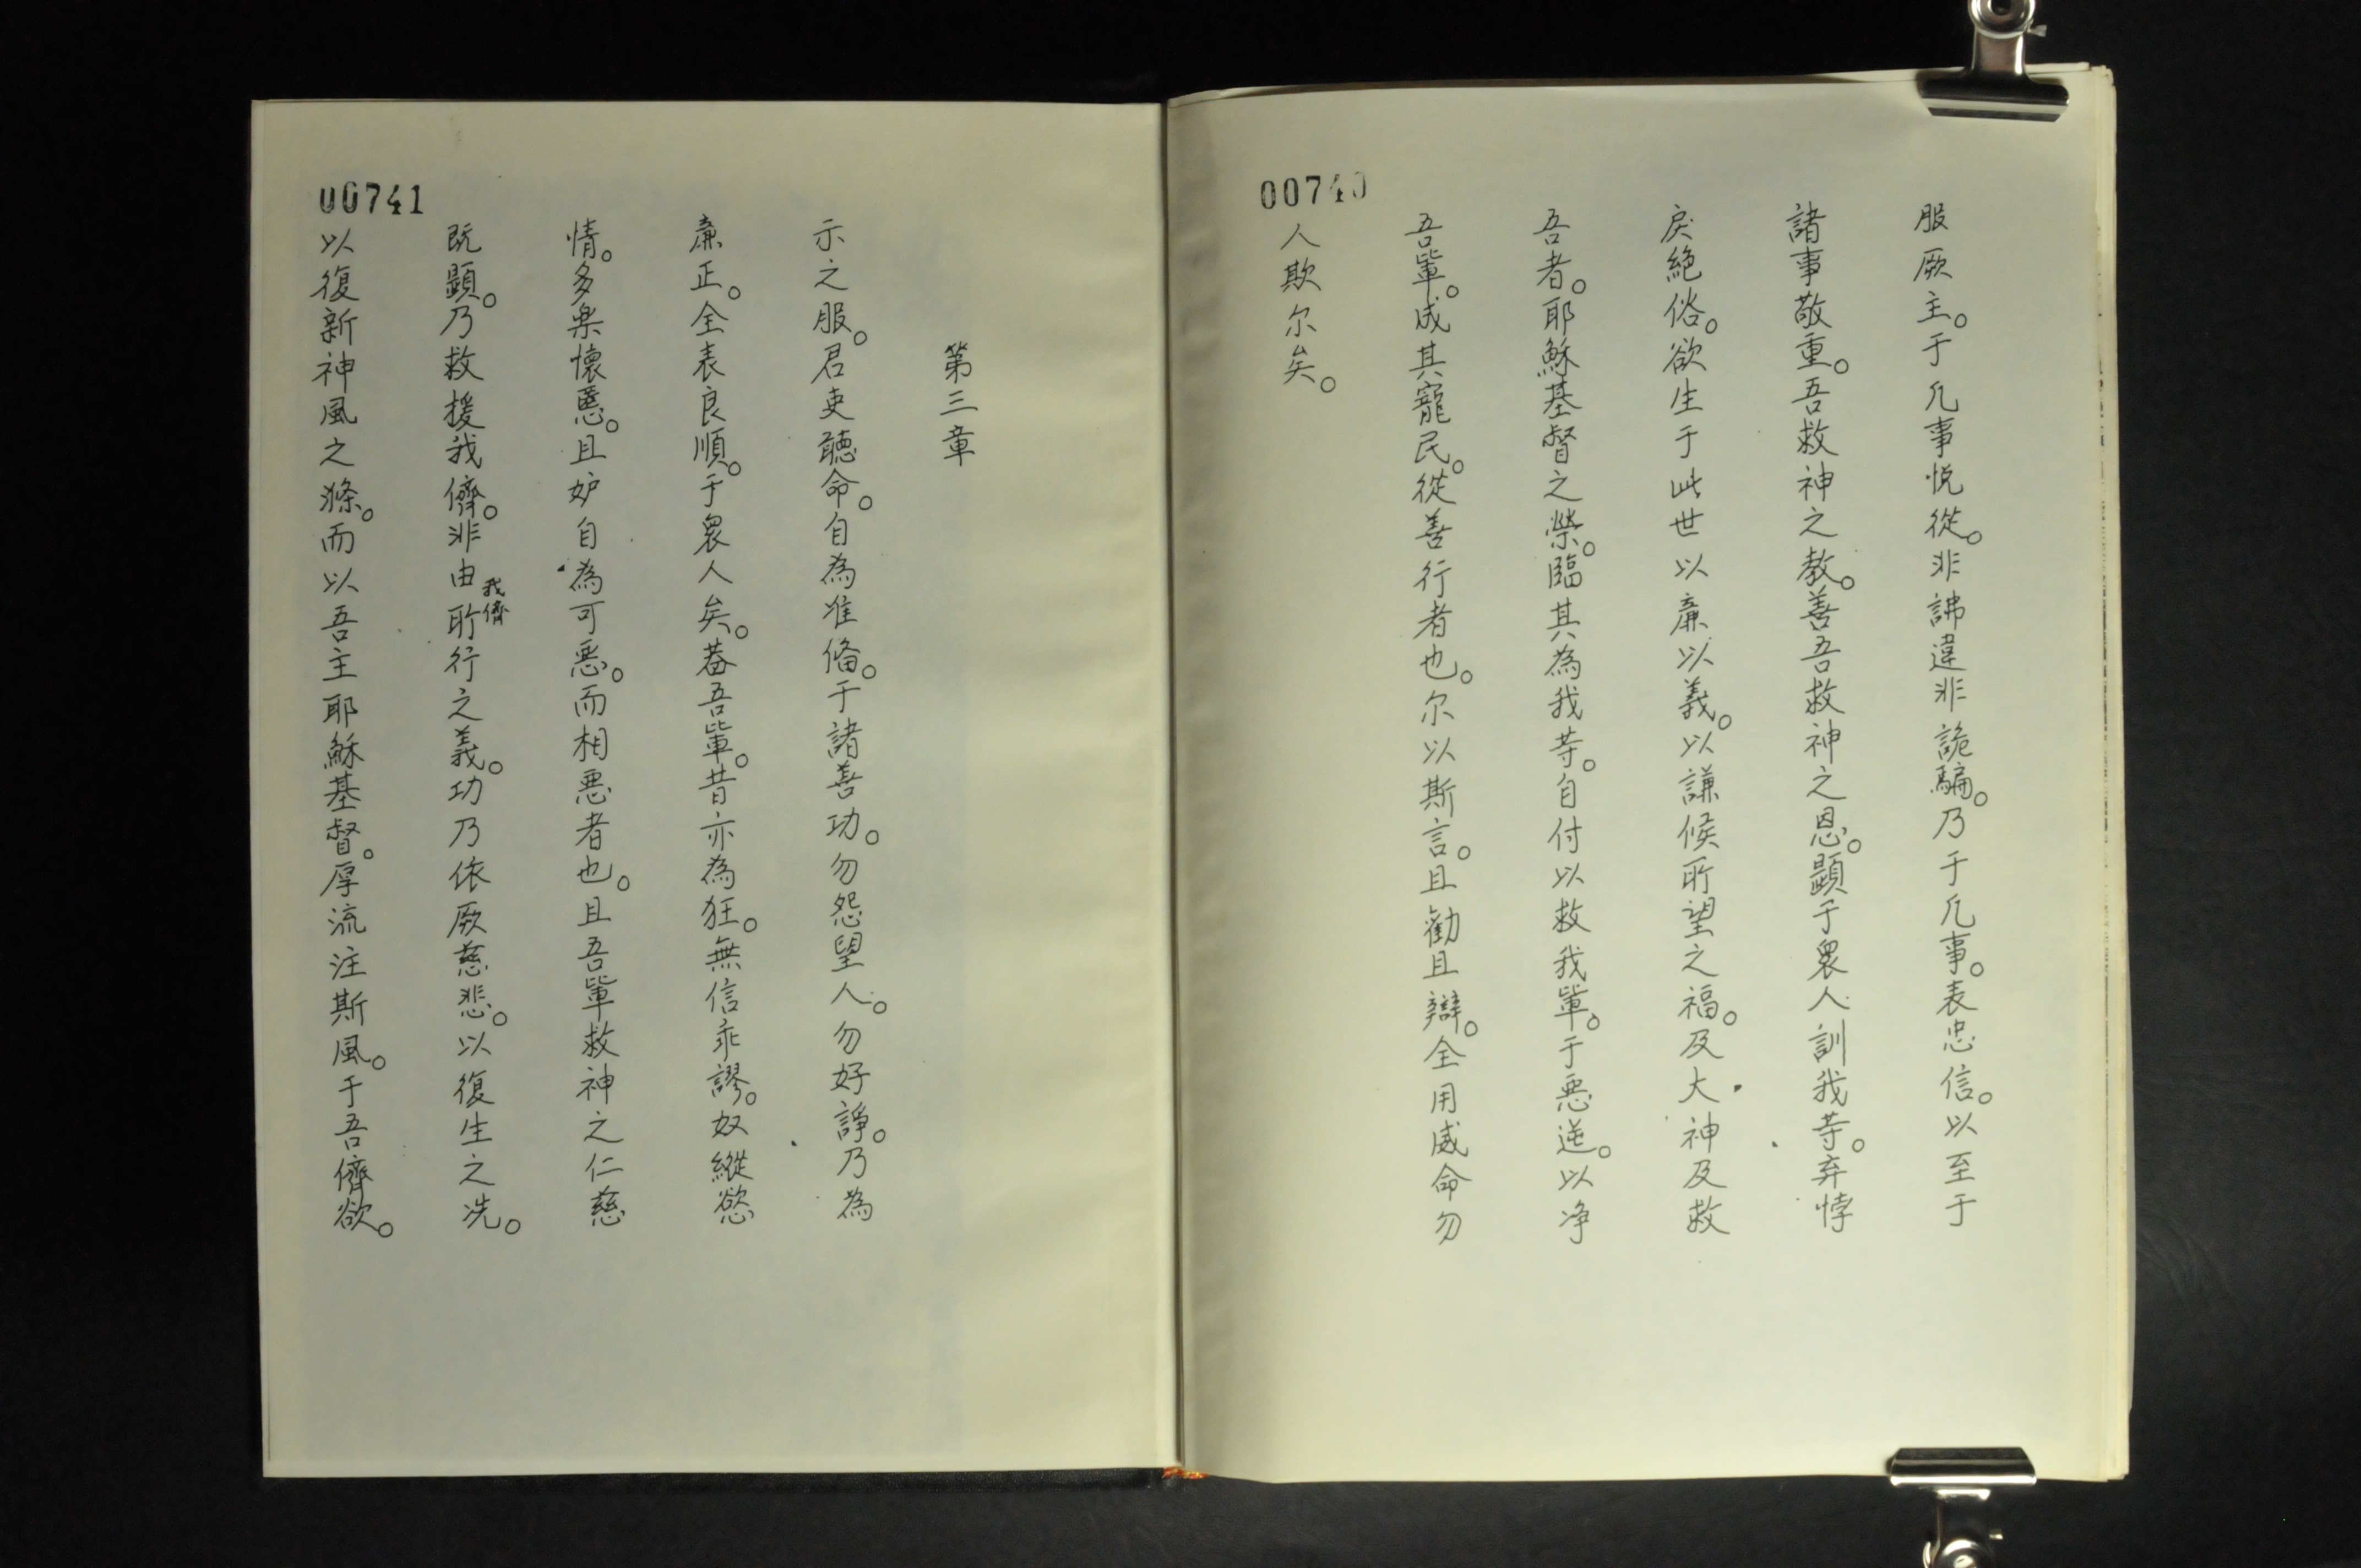 00740
服厥主。于凢事悦從。非誹違非詭騙。乃于凢事。表忠信。以至于
諸事敬重。吾救神之教。善吾救神之恩。顕于衆人訓我䓁。弃悖
戾絶俗。欲生于此世以亷以義。以謙候所望之福。及大神及救
吾者。耶穌基督之榮。臨其為我䓁。自付以救我軰。于悪逆。以净
吾軰。成其寵民。從善行者也。尔以斯言。且勸且辯。全用威命勿
人欺尔矣。
00741
第三章
示之服。君吏聽命。自為准俻。于諸善功。勿怨望人。勿好諍。乃為
亷正。全表良順。于衆人矣。葢吾軰。昔亦為狂。無信乖謬。奴縱慾
情。多樂懷慝。且妒自為可悪。而相悪者也。且吾軰救神之仁慈
既顕。乃救援我儕。非由我儕所行之義。功乃依厥慈悲。以復生之洗。
以復新神風之滌。而以吾主耶穌基督。厚流注斯風。于吾儕欲。